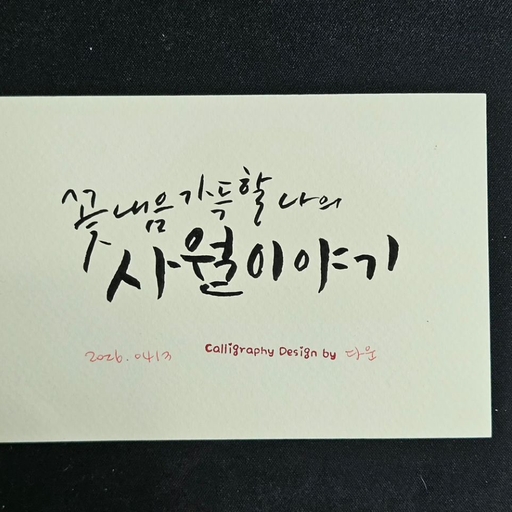 꽃내음 가득할 나의
사월 이야기
2026.0413 Calligraphy Design by 다운